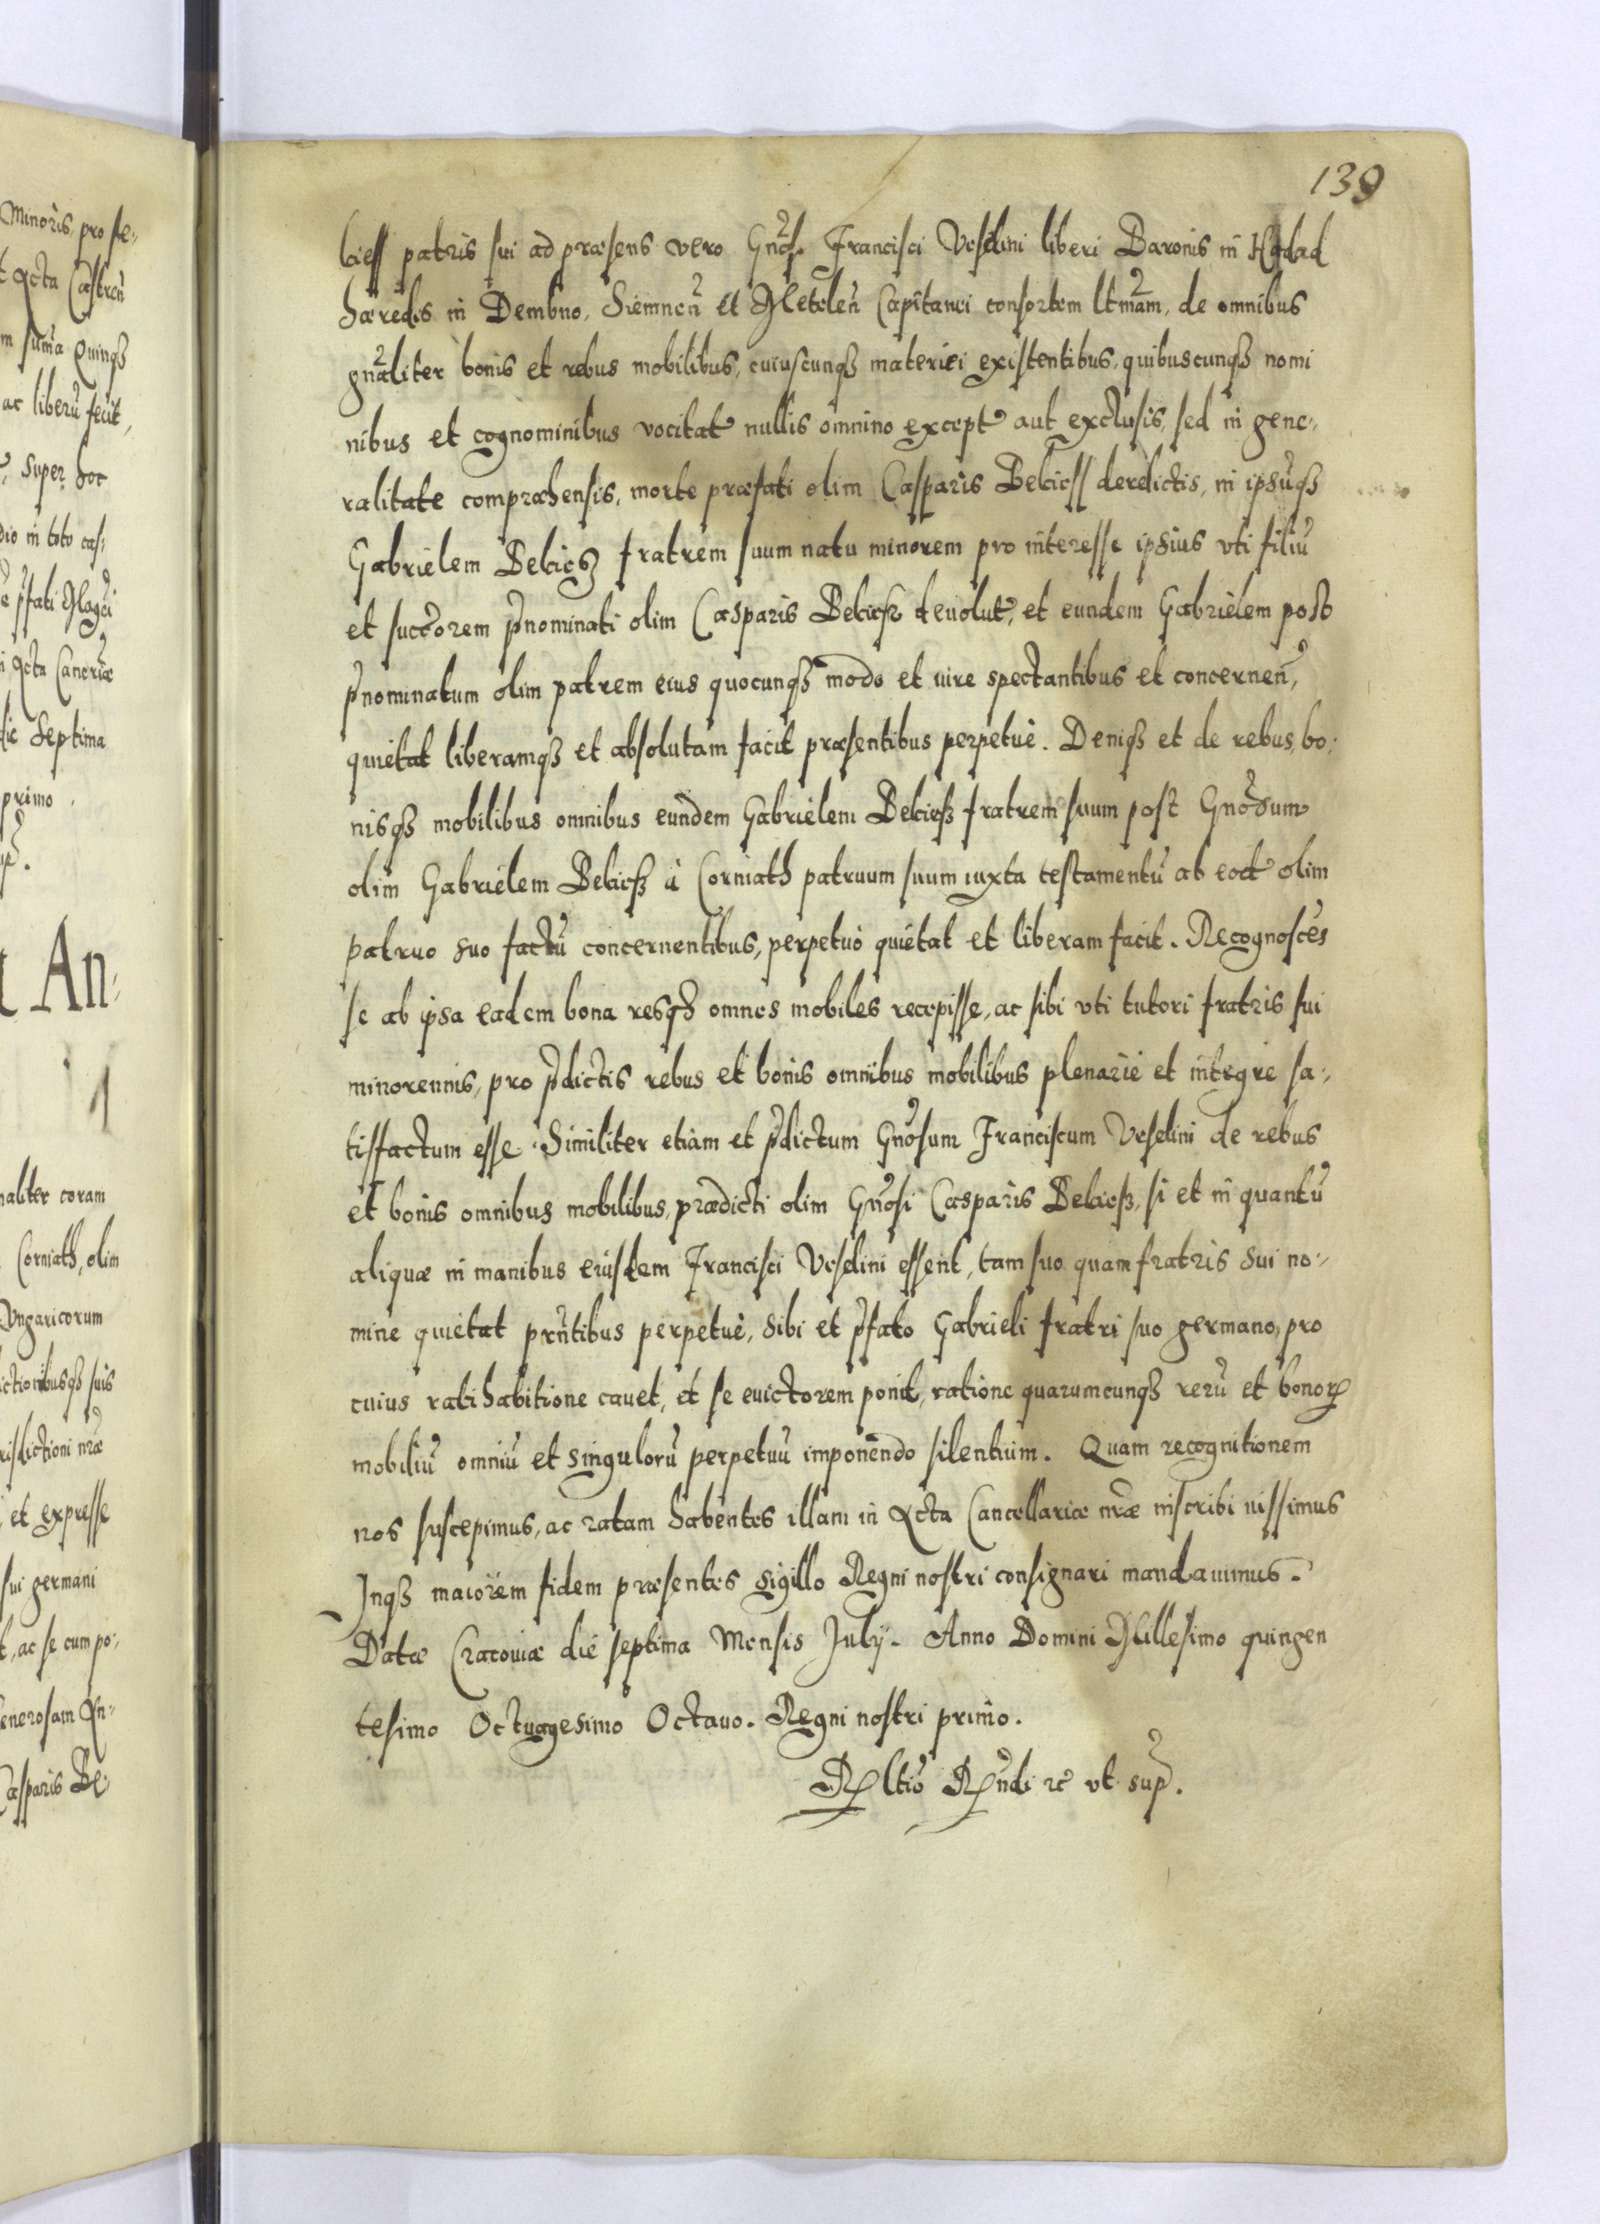 139
kieſſ patris ſui ad præſens vero Gnoſi Franciſci Veſelini liberi Baronis in Hadad
hæredis in Dembno, Siemneñ et Meteleñ Capitanei conſortem ltmam, de omnibus
gnaliter bonis et rebus mobilibus, cuiuscunqȝ materiei exiſtentibus, quibuscunqȝ nomi
nibus et cognominibus vocitat nullis omnino except aut excluſis, ſed in gene:,
ralitate compræhenſis, morte præfati olim Caſparis Bekieſſ derelictis, in ipsuqȝ
Gabrielem Bekieſȝ fratrem ſuum natu minorem pro intereſſe ipſius vti filiũ
et ſuccorem p̃nominati olim Caſparis Bekieſȝ deuolut, et eundem Gabrielem poſt
p̃nominatum olim patrem eius quocunqȝ modo et iure spectantibus et concerneñ,
quietat liberamqȝ et abſolutam facit præſentibus perpetuè. Deniqȝ et de rebus, bo:
nisqȝ mobilibus omnibus eundem Gabrielem Bekieſȝ fratrem ſuum poſt Gnoſum
olim Gabrielem Bekieſȝ à Corniath patruum ſuum iuxta teſtamentũ ab eod olim
patruo suo factũ concernentibus, perpetuò quietat et liberam facit. Recognoſcẽs
ſe ab ipsa eadem bona resqȝ omnes mobiles recepiſſe, ac ſibi vti tutori fratris ſui
minorennis, pro p̃dictis rebus et bonis omnibus mobilibus plenariè et integrè ſa:,
tiſfactum eſſe. Similiter etiam et p̃dictum Gnoſum Franciſcum Veſelini de rebus
et bonis omnibus mobilibus, prædicti olim Gnoſi Caſparis Bekieſȝ, ſi et in quantũ
aliquæ in manibus eiuſdem Franciſci Veſelini eſſent, tam ſuo quam fratris sui no:,
mine quietat prñtibus perpetuè, sibi et p̃fato Gabrieli fratri ſuo germano, pro
cuius ratihabitione cauet, et ſe euictorem ponit, ratione quarumcunqȝ rerũ et bonoꝝ
mobiliũ omniũ et singulorũ perpetuũ imponendo ſilentium. Quam recognitionem
nos ſuſcepimus, ac ratam habentes illam in Acta Cancellariæ nræ inſcribi iuſſimus
Inqȝ maiorem fidem præſentes sigillo Regni noſtri conſignari mandauimus.
Datæ Cracouiæ die ſeptima Menſis Julÿ. Anno Domini Milleſimo quingen
teſimo Octuageſimo Octauo. Regni noſtri primo.
Rltio Rndi ꝛc vt sup.